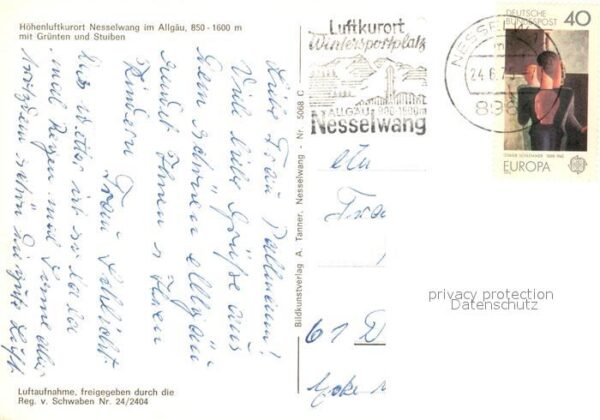 Höhenluftkurort Nesselwang im Allgäu, 850 - 1600 m
mit Grünten und Stuiben
Liebe Frau Pallmann!
Viele liebe Grüße aus
dem schönen Allgäu
sendet Ihnen u Ihren
Kindern Frau
Das Wetter ist so la la
mal Regen mal Sonne aber
trotzdem schön die gute Luft.
Luftaufnahme, freigegeben durch die
Reg. v. Schwaben Nr. 24/2404
Bildkunstverlag A. Tanner, Nesselwang - Nr. 5068 C
Luftkurort
Wintersportplatz
ALLGÄU 900-1600m
Nesselwang
NESSELW
24.6.7
896
DEUTSCHE
BUNDESPOST 40
OSKAR SCHLEMMER 1888-1943
EUROPA CEPT
Frau
61 D
privacy protection
Datenschutz